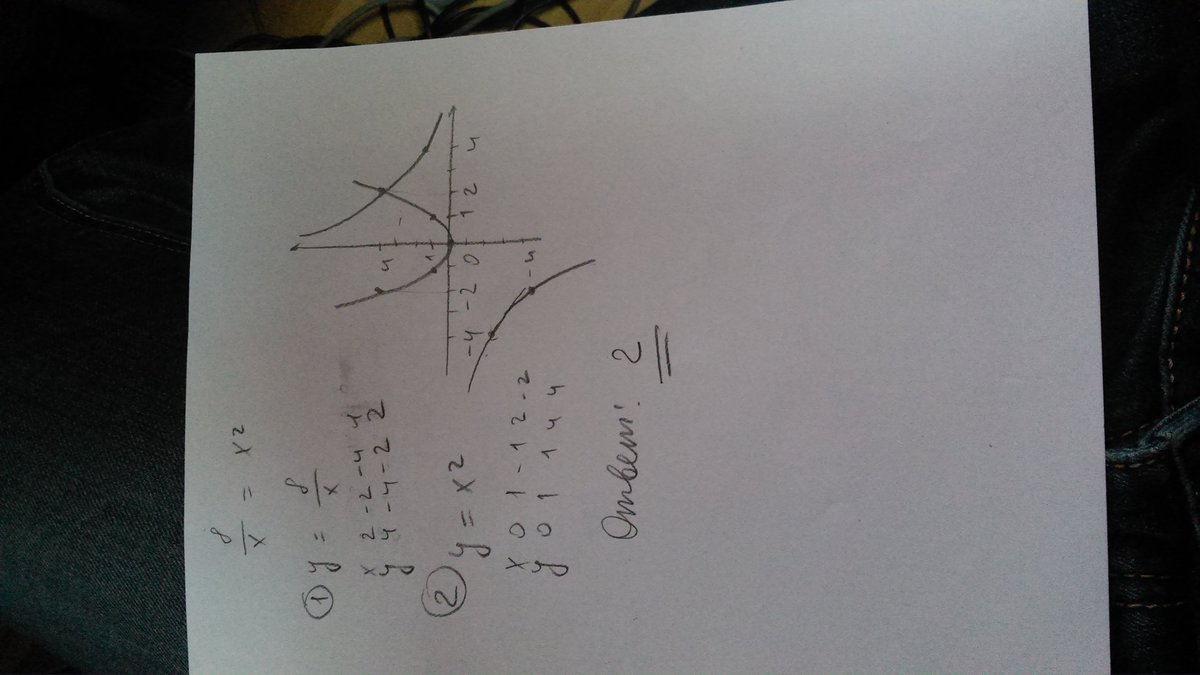 8/x = x²
① y = 8/x
x 2 -2 -4 4
y 4 -4 -2 2
② y = x²
x 0 1 -1 2 -2
y 0 1 1 4 4
4
1
-4 -2 0 1 2 4
-4
Ответ: 2